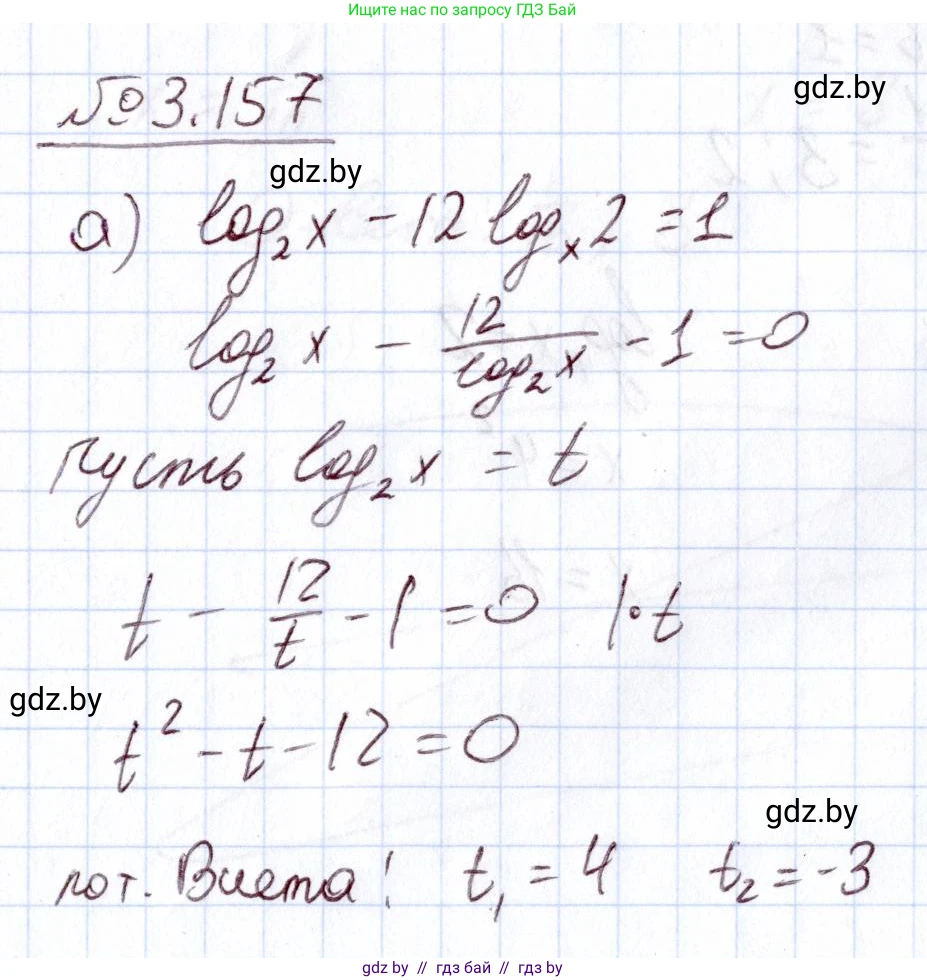 Ищите нас по запросу ГДЗ Бай
№3.157
gdz.by
gdz.by
а) log₂x - 12 logₓ2 = 1
log₂x - 12/log₂x - 1 = 0
Пусть log₂x = t
t - 12/t - 1 = 0 |·t
gdz.by
t² - t - 12 = 0
gdz.by
по т. Виета: t₁ = 4 t₂ = -3
gdz.by // гдз бай // gdz.by